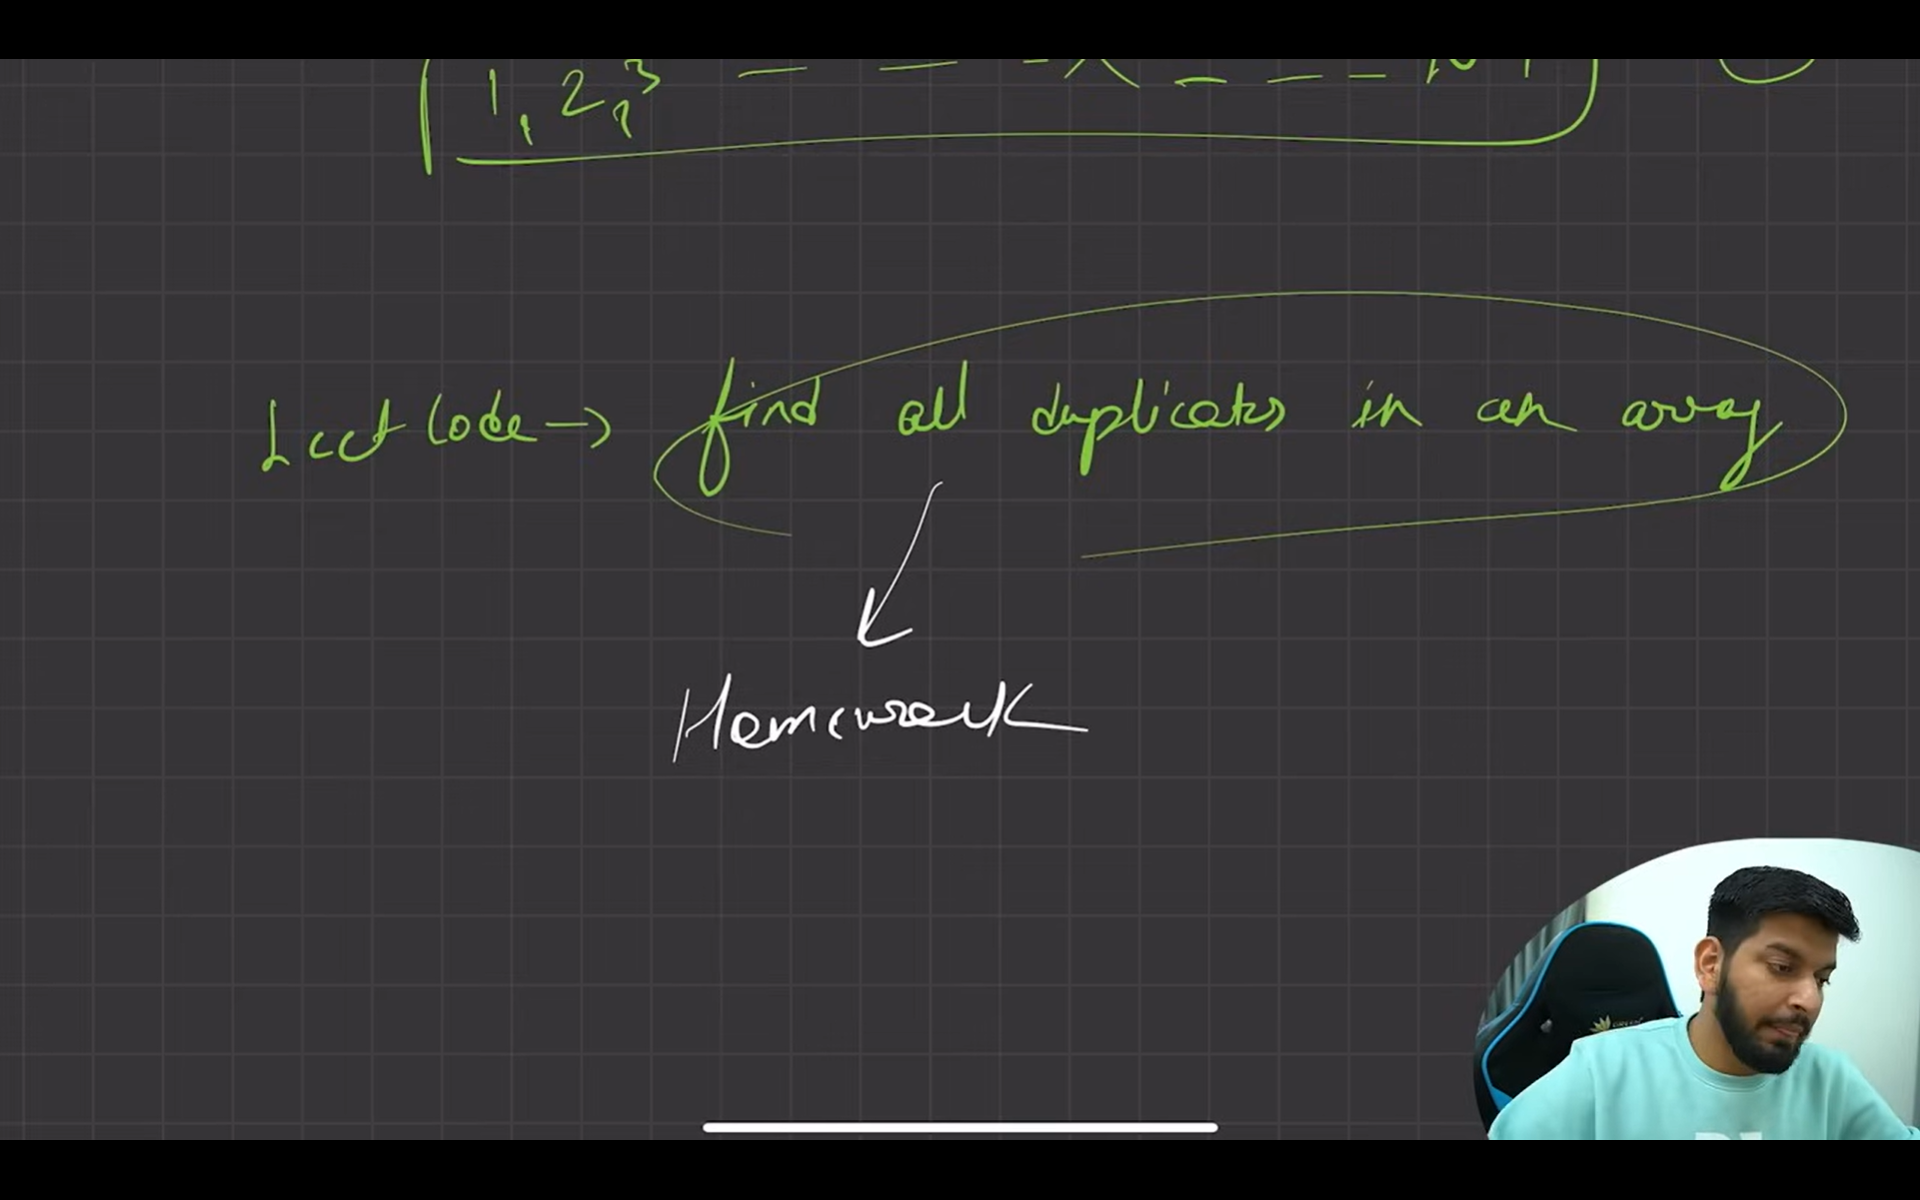 1, 2, 3
LeetCode → find all duplicates in an array
Homework